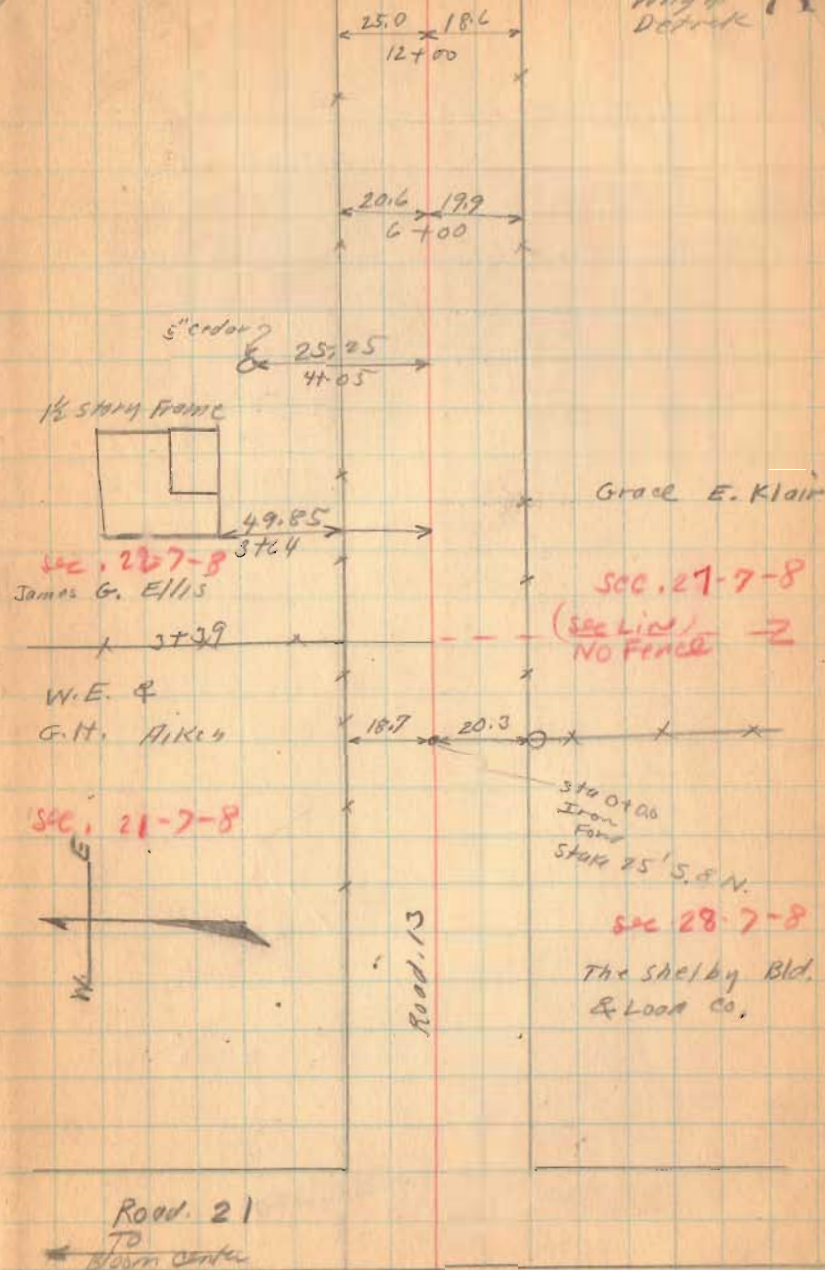 Detrick
25.0 18.6
12+00
20.6 19.9
6+00
5" cedar
25.25
4+05
1½ story Frame
49.85
3+64
Grace E. Klair
James G. Ellis
sec. 27-7-8
3+39
(sec Line)
No Fence
W.E. &
G.H. Aiken
18.7 20.3
Sta 0+00
Iron
Stake 25' S. & N.
sec. 21-7-8
E
W
sec 28-7-8
Road. 13
The Shelby Bld.
& Loan Co.
Road. 21
To
Bloom Center